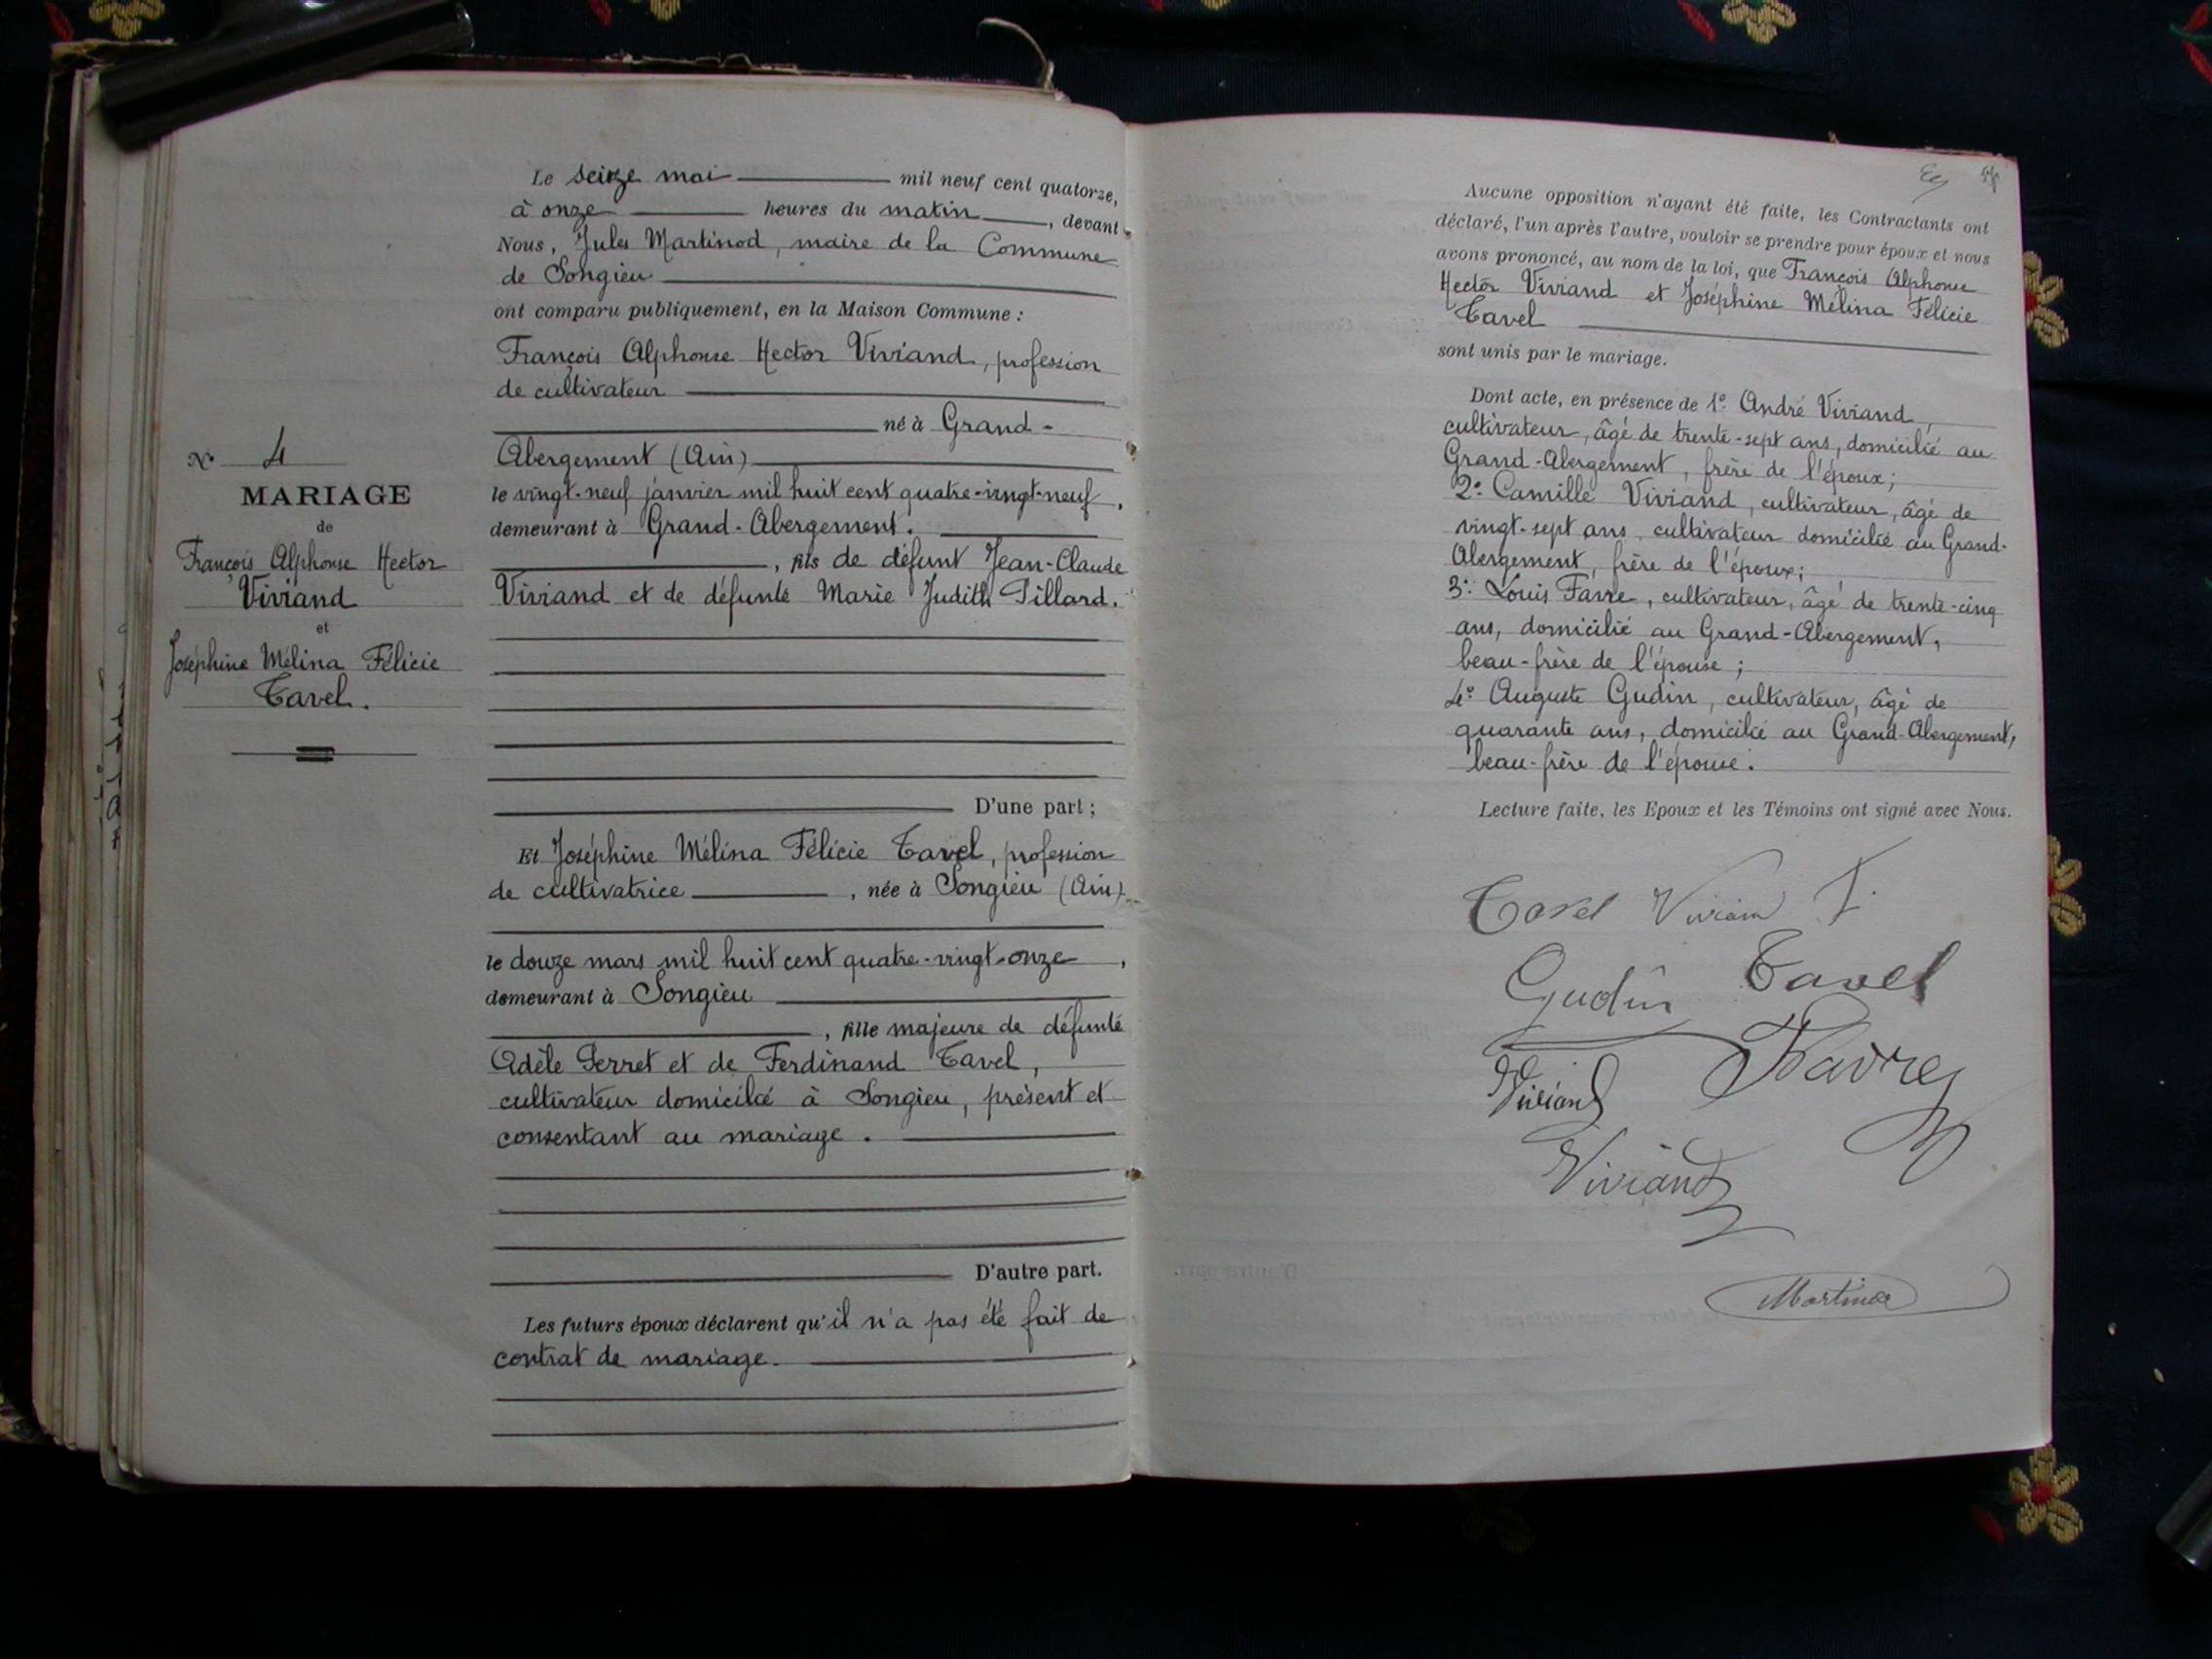 N° 4
MARIAGE
de
François Alphonse Hector
Viviand
et
Joséphine Mélina Félicie
Tavel.
Le seize mai mil neuf cent quatorze,
à onze heures du matin, devant
Nous, Jules Martinod, maire de la Commune
de Songieu
ont comparu publiquement, en la Maison Commune :
François Alphonse Hector Viviand, profession
de cultivateur
né à Grand-
Abergement (Ain)
le vingt-neuf janvier mil huit cent quatre-vingt-neuf,
demeurant à Grand-Abergement.
, fils de défunt Jean-Claude
Viviand et de défunte Marie Judith Pillard.
D'une part ;
Et Joséphine Mélina Félicie Tavel, profession
de cultivatrice, née à Songieu (Ain)
le douze mars mil huit cent quatre-vingt-onze,
demeurant à Songieu
, fille majeure de défunte
Adèle Perret et de Ferdinand Tavel,
cultivateur domicilié à Songieu, présent et
consentant au mariage.
D'autre part.
Les futurs époux déclarent qu'il n'a pas été fait de
contrat de mariage.
Aucune opposition n'ayant été faite, les Contractants ont
déclaré, l'un après l'autre, vouloir se prendre pour époux et nous
avons prononcé, au nom de la loi, que François Alphonse
Hector Viviand et Joséphine Mélina Félicie
Tavel
sont unis par le mariage.
Dont acte, en présence de 1° André Viviand,
cultivateur, âgé de trente-sept ans, domicilié au
Grand-Abergement, frère de l'époux;
2° Camille Viviand, cultivateur, âgé de
vingt-sept ans, cultivateur domicilié au Grand-
Abergement, frère de l'époux;
3° Louis Favre, cultivateur, âgé de trente-cinq
ans, domicilié au Grand-Abergement,
beau-frère de l'épouse;
4° Auguste Gudin, cultivateur, âgé de
quarante ans, domicilié au Grand-Abergement,
beau-frère de l'épouse.
Lecture faite, les Epoux et les Témoins ont signé avec Nous.
Tavel Vivian F.
Gudin Tavel
Viviand Favre
Viviand
Martinod